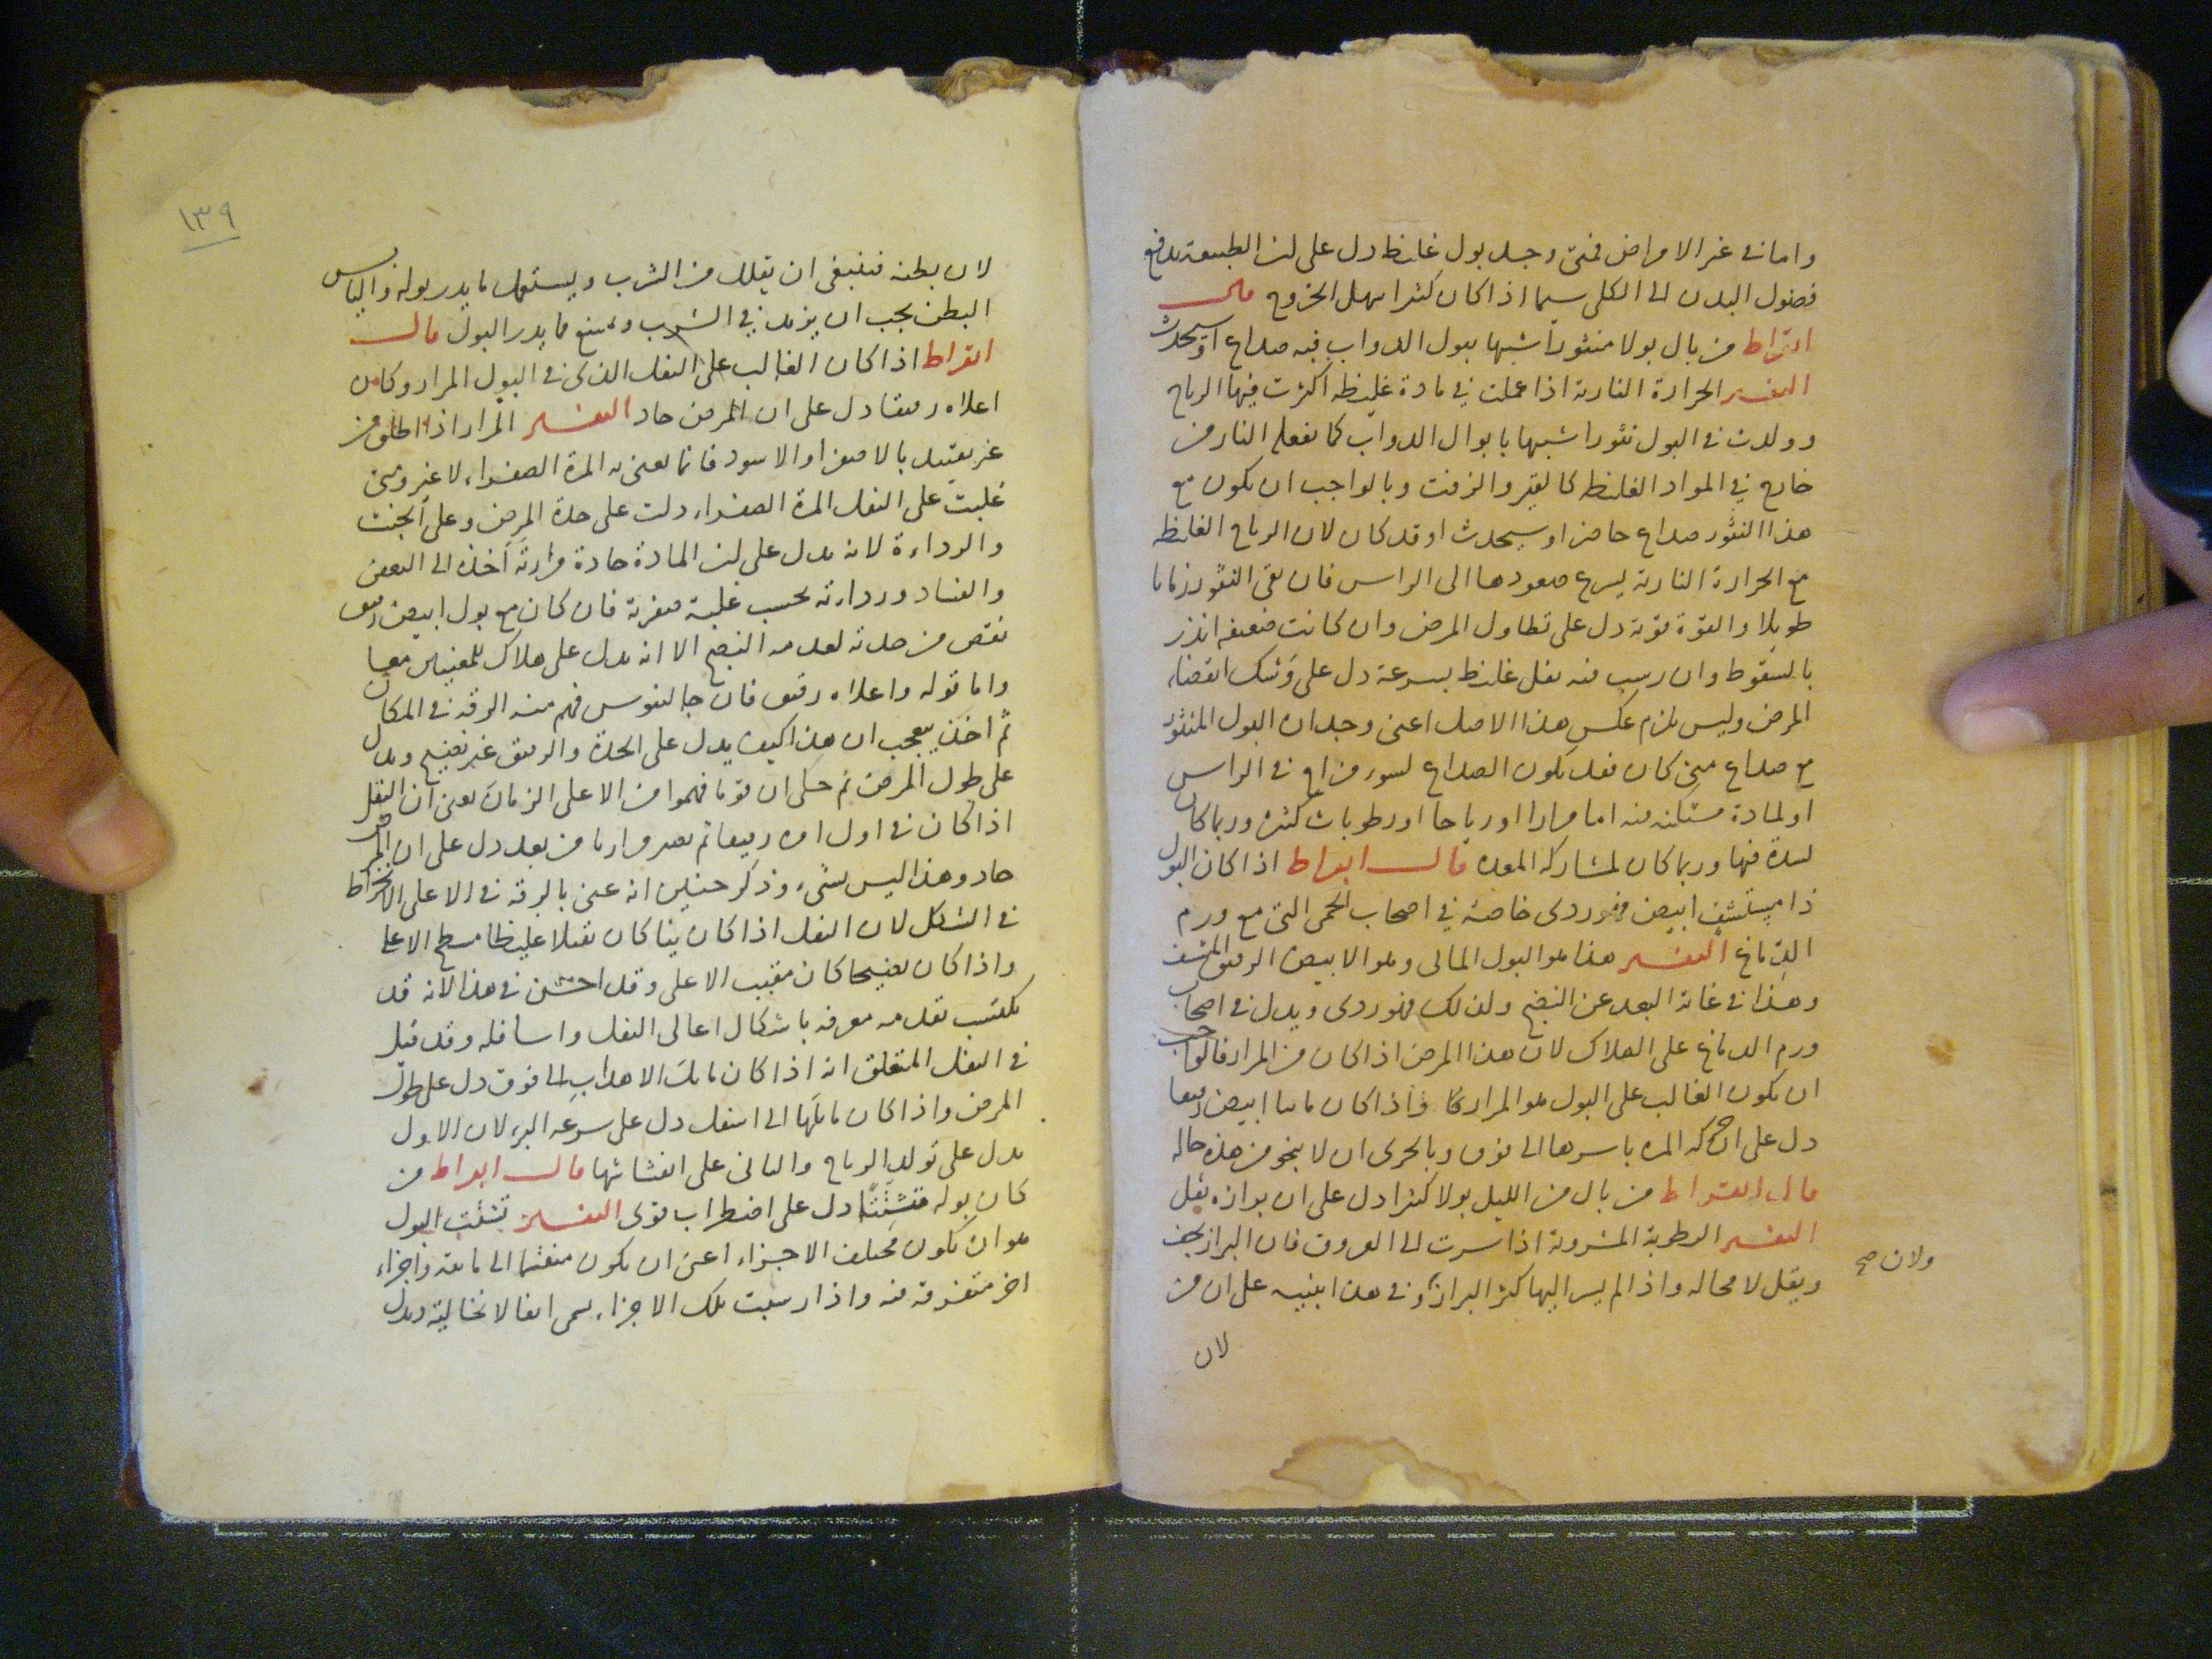 واما في غير الامراض فمتى وجد بول غليظ دل على ان الطبيعة تدفع
فضول البدن الى الكلى سيما اذا كان كثيرا سهل الخروج قال
ابقراط من بال بولا منثورا شبيها ببول الدواب فبه صداع او سيحدث
التفسير الحرارة النارية اذا عملت في مادة غليظه اكثرت فيها الرياح
وولدت في البول نثورا شبيها بابوال الدواب كما يفعله النار من
خارج في المواد الغليظه كالقير والزفت وبالواجب ان يكون مع
هذا النثور صداع حاضر او سيحدث او قد كان لان الرياح الغليظه
مع الحرارة النارية يسرع صعودها الى الراس فان بقى النثور زمانا
طويلا والقوة قوية دل على تطاول المرض وان كانت ضعيفه انذر
بالسقوط وان رسب فيه ثفل غليظ بسرعة دل على وشك انقضاء
المرض وليس يلزم عكس هذا الاصل اعنى وجدان البول المنثور
مع صداع متى كان فقد يكون الصداع لسوء مزاج في الراس
او لمادة مستكنه فيه اما مرارا او رياحا او رطوبات كثيره وربما كان
لسدة فيها وربما كان لمشاركة المعده قال ابقراط اذا كان البول
ذا مستشف ابيض فهو ردى خاصة في اصحاب الحمى التى مع ورم
الدماغ التفسير هذا هو البول المائى وهو الابيض الرقيق المشف
وهذا في غاية البعد عن النضج ولذلك فهو ردى ويدل في اصحاب
ورم الدماغ على الهلاك لان هذا المرض اذا كان من المرار فالواجب
ان يكون الغالب على البول هو المرار فاذا كان مائيا ابيض رقيقا
دل على ان حركه المره باسرها الى فوق وبالحرى ان لا ينجو من هذه حاله
قال ابقراط من بال من الليل بولا كثيرا دل على ان برازه يقل
التفسير الرطوبة المشروبة اذا سرت الى العروق فان البراز يجف
ويقل لا محاله واذا لم يسر اليها كثر البراز وفي هذا تنبيه على ان من
ولان صح
لان
١٣٩
لان بطنه فينبغى ان يقلل من الشرب ويستعمل ما يدر بوله واليابس
البطن يجب ان يزيد في الشرب ويمنع مما يدر البول قال
ابقراط اذا كان الغالب على الثفل الذى في البول المرار وكان
اعلاه رقيقا دل على ان المرض حاد التفسير المرار اذا اطلق من
غير تقييد بالاصفر او الاسود فانما يعنى به المرة الصفراء لا غير ومتى
غلبت على الثفل المرة الصفراء دلت على حدة المرض وعلى الخبث
والرداءة لانه يدل على ان المادة حادة مرارية آخذه الى التعفن
والفساد ورداءته بحسب غلبة صفرته فان كان مع بول ابيض رقيق
نقص من حدته لعدمه النضج الا انه يدل على هلاك للمعنيين معا
واما قوله واعلاه رقيق فان جالينوس فهم منه الرقه في المكان
ثم اخذ يعجب ان هذا كيف يدل على الحدة والرقيق غير نضيج ويدل
على طول المرض ثم حكى ان قوما فهموا من الاعلى الزمان يعنى ان الثفل
اذا كان في اول امره رقيقا ثم يصير مراريا من بعد دل على ان المرض
حاد وهذا ليس بشىء وذكر حنين انه عنى بالرقه في الاعلى الانخراط
في الشكل لان الثفل اذا كان نيئا كان ثقيلا غليظا مسطح الاعلى
واذا كان نضيجا كان مقبب الاعلى وقد احسن في هذا لانه قد
يكتسب تقدمه معرفه باشكال اعالى الثفل واسافله وقد قيل
في الثفل المتعلق انه اذا كان مايل الاهداب الى فوق دل على طول
المرض واذا كان مايلها الى اسفل دل على سرعه البرء لان الاول
يدل على تولد الرياح والثانى على انفشاشها قال ابقراط من
كان بوله متشتتا دل على اضطراب قوى التفسير تشتت البول
هو ان يكون مختلف الاجزاء اعنى ان يكون منقسما الى مائية واجزاء
اخر متفرقه فيه واذا رسبت تلك الاجزاء سمى اثفالا نخالية ويدل